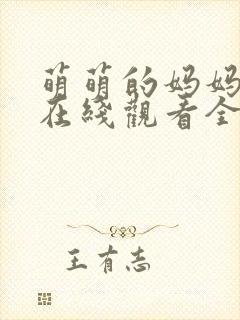 萌萌的妈妈
在綫觀看全
王有志